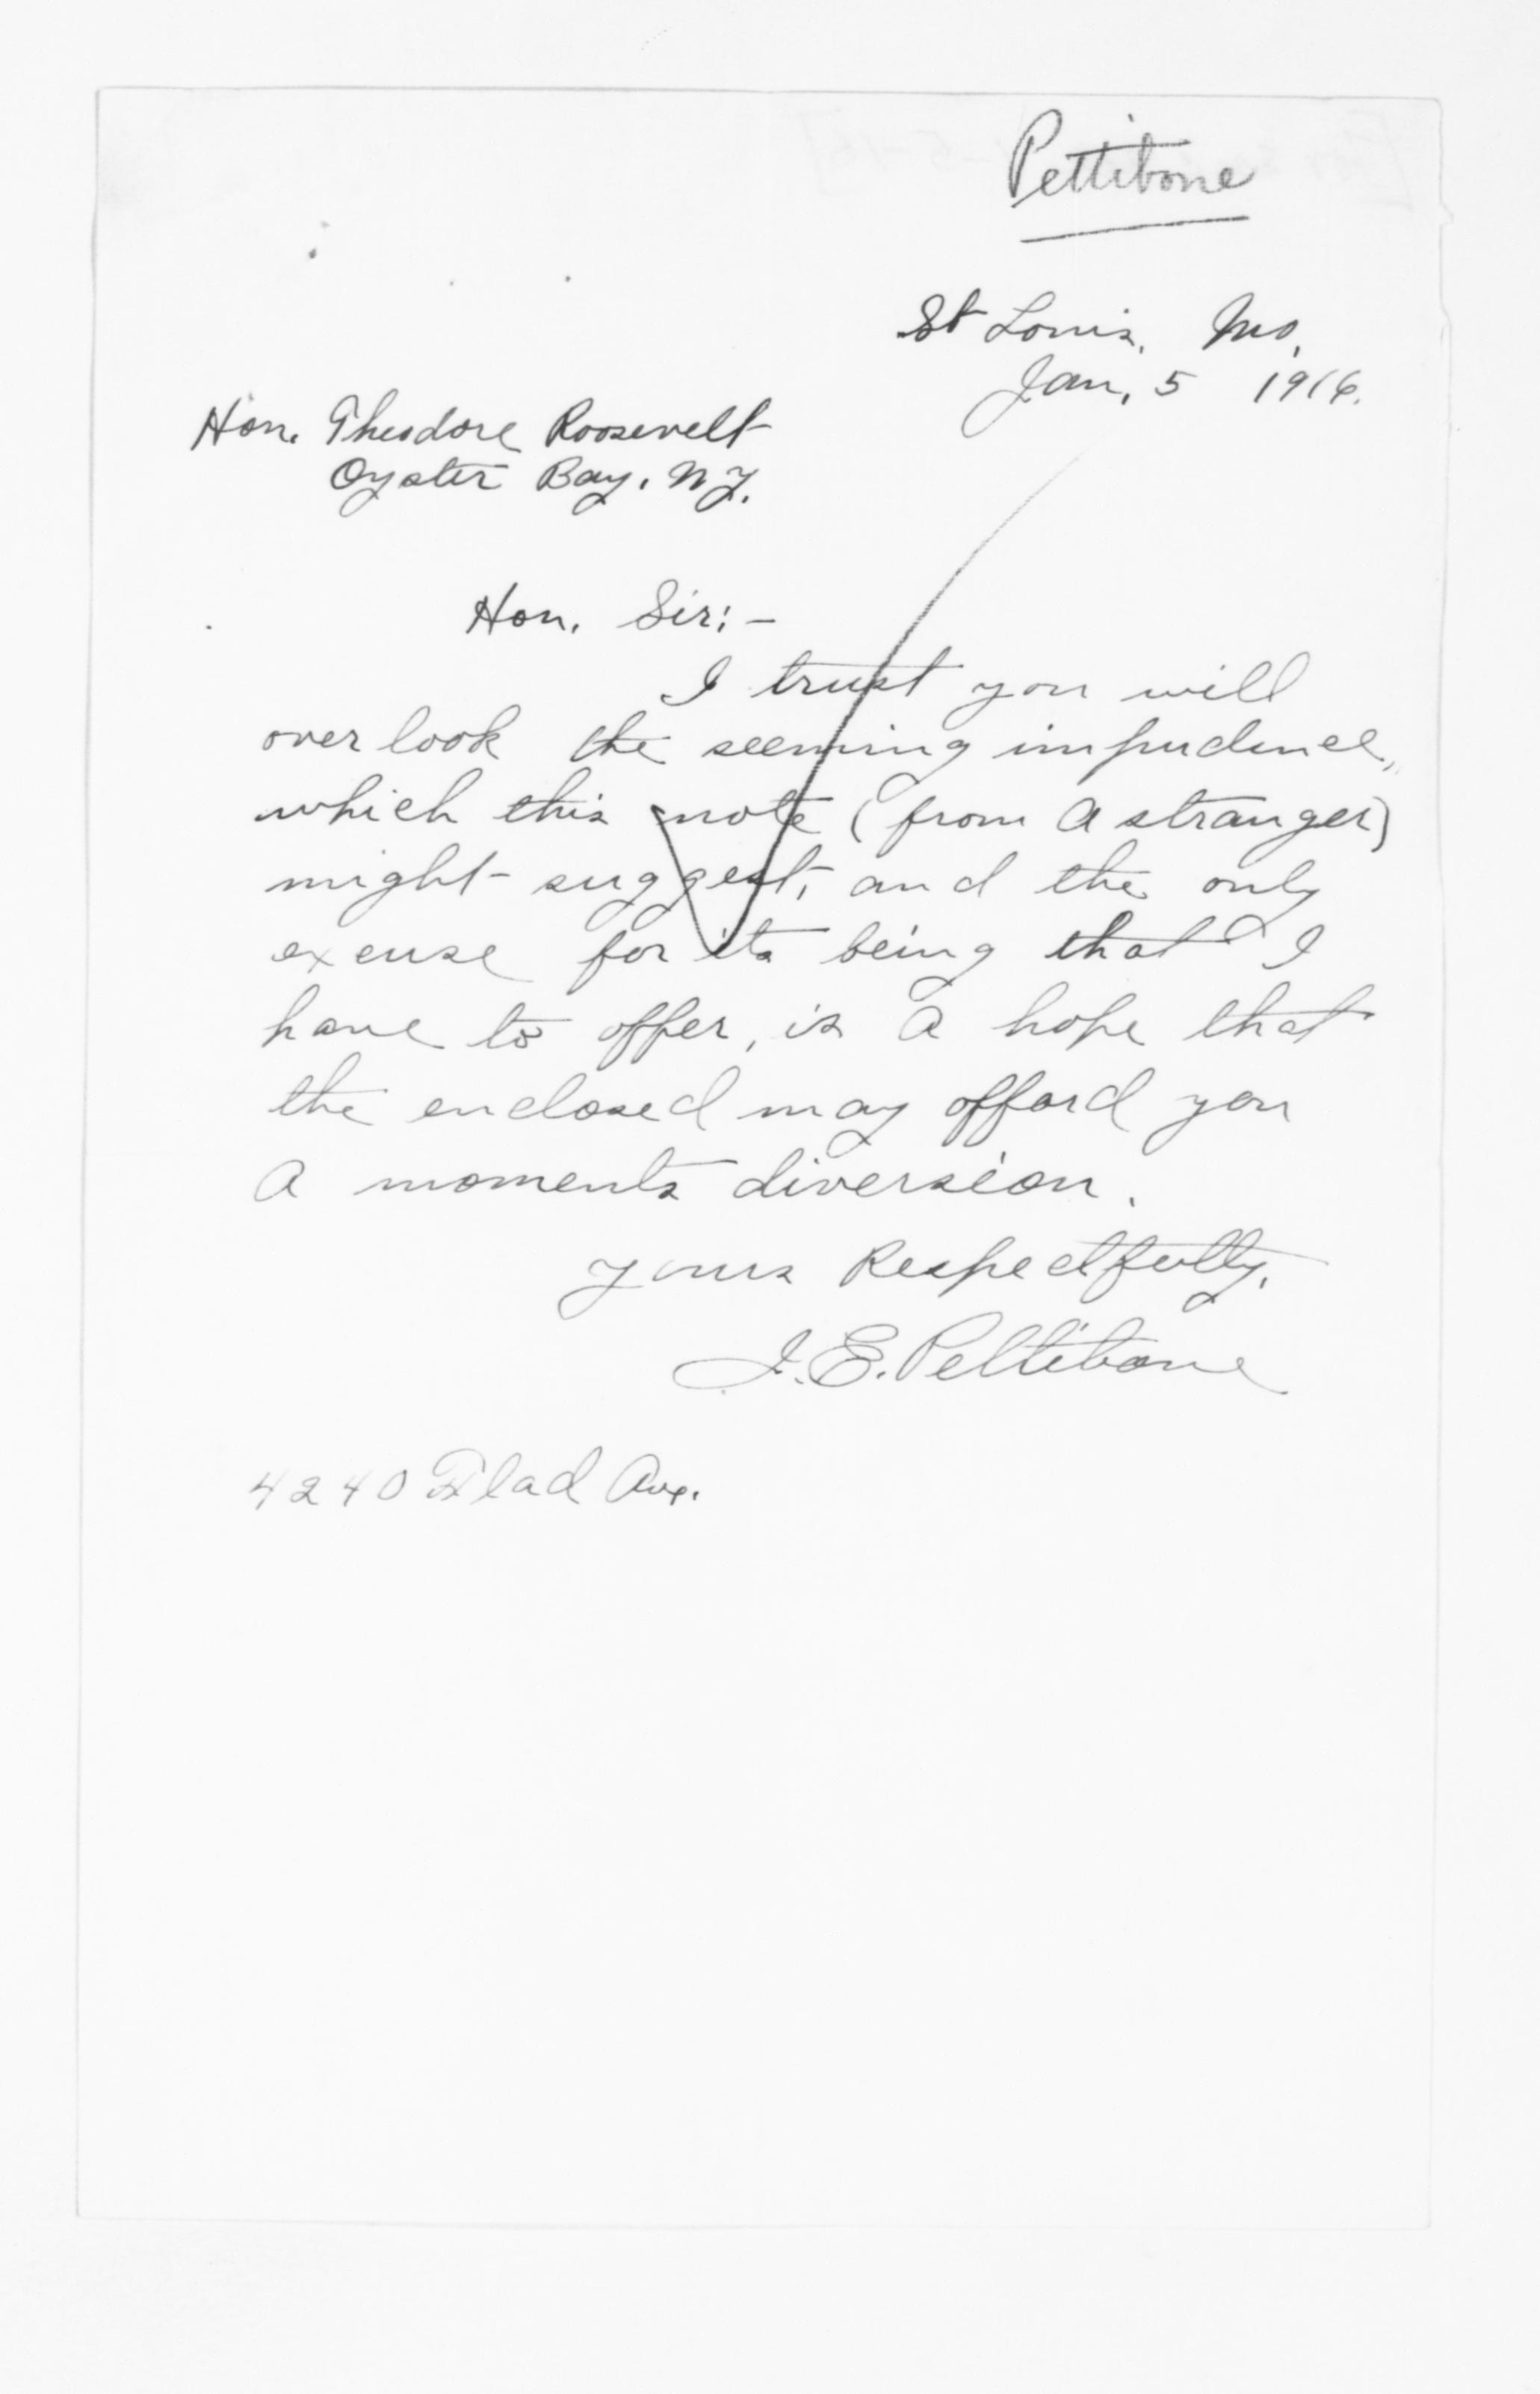 Pettibone
St Louis, Mo,
Jan, 5 1916.
Hon. Theodore Roosevelt
Oyster Bay, N.Y.
Hon. Sir:-
I trust you will
over look the seeming impudence,
which this note (from a stranger)
might suggest, and the only
excuse for its being that I
have to offer, is a hope that
the enclosed may afford you
a moments diversion.
Yours Respectfully,
J. E. Pettibone
4240 Flad Ave.